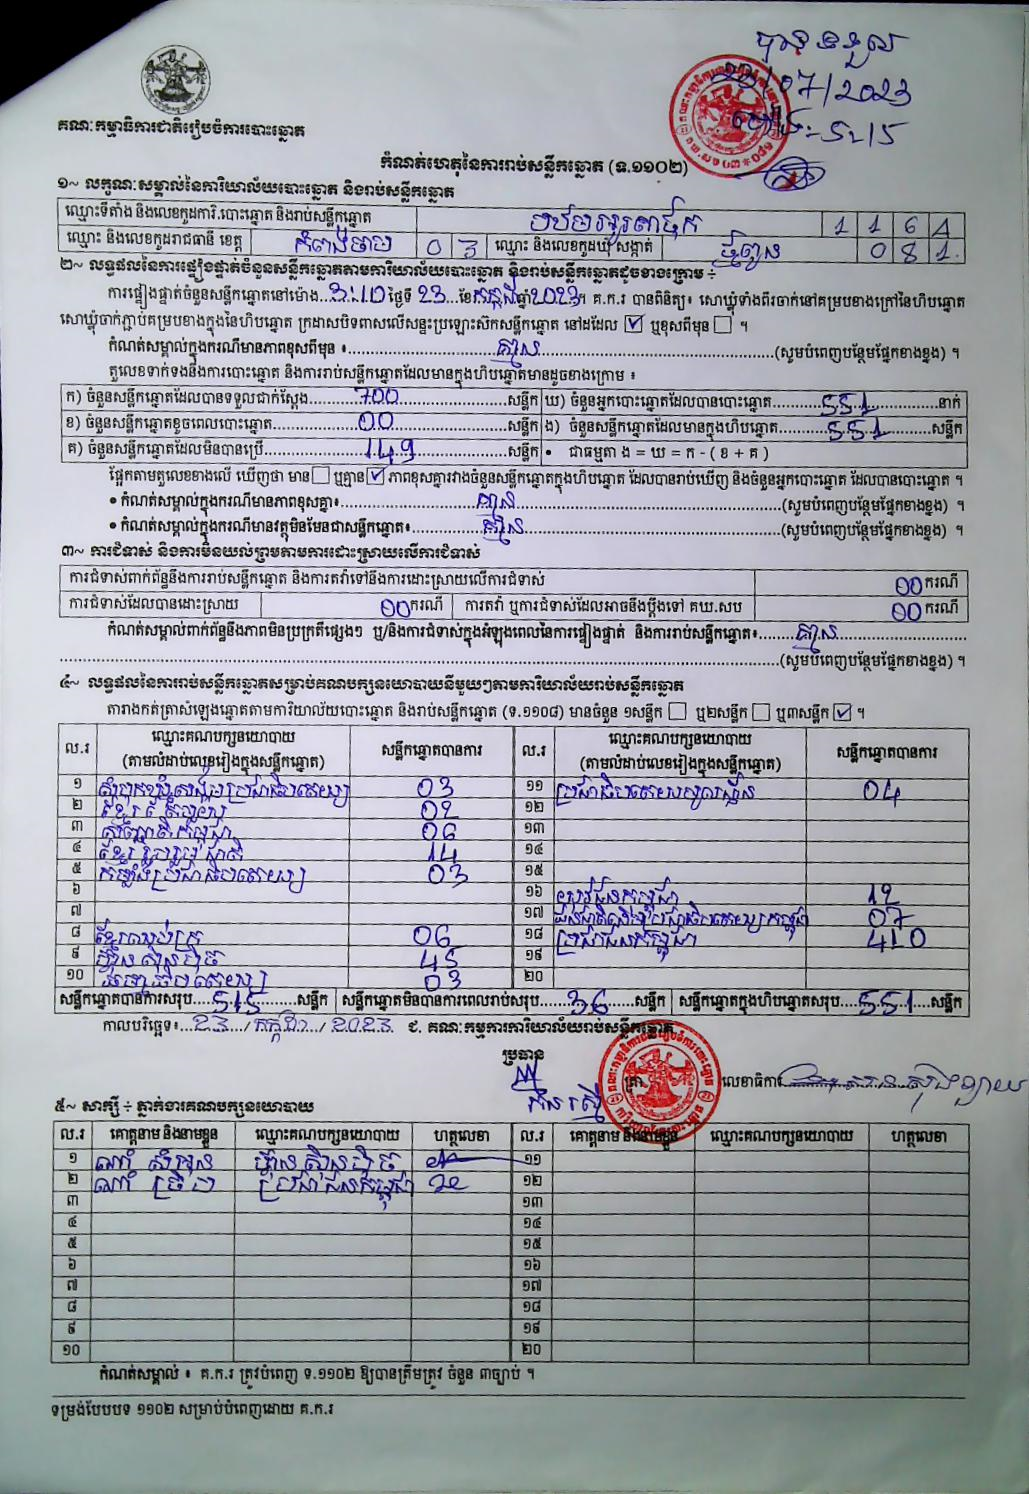 បានទទួល
23/07/2023
ម៉ោង:5:15
គណៈកម្មាធិការជាតិរៀបចំការបោះឆ្នោត
កំណត់ហេតុនៃការរាប់សន្លឹកឆ្នោត (ទ.១១០២)
១~ លក្ខណៈសម្គាល់នៃការិយាល័យបោះឆ្នោត និងរាប់សន្លឹកឆ្នោត
ឈ្មោះទីតាំង និងលេខកូដការិ.បោះឆ្នោត និងរាប់សន្លឹកឆ្នោត 1 1 6 4
ឈ្មោះ និងលេខកូដរាជធានី ខេត្ត កំពង់ចាម 0 3 ឈ្មោះ និងលេខកូដឃុំ សង្កាត់ 0 8 1
២~ លទ្ធផលនៃការផ្ទៀងផ្ទាត់ចំនួនសន្លឹកឆ្នោតតាមការិយាល័យបោះឆ្នោត និងរាប់សន្លឹកឆ្នោតដូចខាងក្រោម ÷
ការផ្ទៀងផ្ទាត់ចំនួនសន្លឹកឆ្នោតនៅម៉ោង 3:10 ថ្ងៃទី 23 ខែ កក្កដា ឆ្នាំ 2023។ គ.ក.រ បានពិនិត្យ៖ សោឃ្លុំទាំងពីរចាក់នៅគម្របខាងក្រៅនៃហិបឆ្នោត
សោឃ្លុំចាក់ភ្ជាប់គម្របខាងក្នុងនៃហិបឆ្នោត ក្រដាសបិទពាសលើសន្ទះប្រឡោះស៊កសន្លឹកឆ្នោត នៅដដែល ☑ ឬខុសពីមុន ☐ ។
កំណត់សម្គាល់ក្នុងករណីមានភាពខុសពីមុន ៖ គ្មាន (សូមបំពេញបន្ថែមផ្នែកខាងខ្នង) ។
តួលេខទាក់ទងនឹងការបោះឆ្នោត និងការរាប់សន្លឹកឆ្នោតដែលមានក្នុងហិបឆ្នោតមានដូចខាងក្រោម ៖
ក) ចំនួនសន្លឹកឆ្នោតដែលបានទទួលជាក់ស្តែង 700 សន្លឹក ឃ) ចំនួនអ្នកបោះឆ្នោតដែលបានបោះឆ្នោត 551 នាក់
ខ) ចំនួនសន្លឹកឆ្នោតខូចពេលបោះឆ្នោត 00 សន្លឹក ង) ចំនួនសន្លឹកឆ្នោតដែលមានក្នុងហិបឆ្នោត 551 សន្លឹក
គ) ចំនួនសន្លឹកឆ្នោតដែលមិនបានប្រើ 149 សន្លឹក • ជាធម្មតា ង = ឃ = ក - ( ខ + គ )
ផ្អែកតាមតួលេខខាងលើ ឃើញថា មាន ☐ ឬគ្មាន ☑ ភាពខុសគ្នារវាងចំនួនសន្លឹកឆ្នោតក្នុងហិបឆ្នោត ដែលបានរាប់ឃើញ និងចំនួនអ្នកបោះឆ្នោត ដែលបានបោះឆ្នោត ។
• កំណត់សម្គាល់ក្នុងករណីមានភាពខុសគ្នា៖ គ្មាន (សូមបំពេញបន្ថែមផ្នែកខាងខ្នង) ។
• កំណត់សម្គាល់ក្នុងករណីមានវត្ថុមិនមែនជាសន្លឹកឆ្នោត៖ គ្មាន (សូមបំពេញបន្ថែមផ្នែកខាងខ្នង) ។
៣~ ការជំទាស់ និងការមិនយល់ព្រមតាមការដោះស្រាយលើការជំទាស់
ការជំទាស់ពាក់ព័ន្ធនឹងការរាប់សន្លឹកឆ្នោត និងការតវ៉ាទៅនឹងការដោះស្រាយលើការជំទាស់ 00 ករណី
ការជំទាស់ដែលបានដោះស្រាយ 00 ករណី ការតវ៉ា ឬការជំទាស់ដែលអាចនឹងប្តឹងទៅ គឃ.សប 00 ករណី
កំណត់សម្គាល់ពាក់ព័ន្ធនឹងភាពមិនប្រក្រតីផ្សេងៗ ឬ/និងការជំទាស់ក្នុងអំឡុងពេលនៃការផ្ទៀងផ្ទាត់ និងការរាប់សន្លឹកឆ្នោត៖ គ្មាន
(សូមបំពេញបន្ថែមផ្នែកខាងខ្នង) ។
៤~ លទ្ធផលនៃការរាប់សន្លឹកឆ្នោតសម្រាប់គណបក្សនយោបាយនីមួយៗតាមការិយាល័យរាប់សន្លឹកឆ្នោត
តារាងកត់ត្រាសំឡេងឆ្នោតតាមការិយាល័យបោះឆ្នោត និងរាប់សន្លឹកឆ្នោត (ទ.១១០៨) មានចំនួន ១សន្លឹក ☐ ឬ២សន្លឹក ☐ ឬ៣សន្លឹក ☑ ។
ល.រ ឈ្មោះគណបក្សនយោបាយ (តាមលំដាប់លេខរៀងក្នុងសន្លឹកឆ្នោត) សន្លឹកឆ្នោតបានការ ល.រ ឈ្មោះគណបក្សនយោបាយ (តាមលំដាប់លេខរៀងក្នុងសន្លឹកឆ្នោត) សន្លឹកឆ្នោតបានការ
១ សំបុកឃ្មុំសង្គមប្រជាធិបតេយ្យ 03 ១១ 04
២ 02 ១២
៣ 06 ១៣
៤ ខ្មែររួបរួមជាតិ 14 ១៤
៥ កម្លាំងប្រជាធិបតេយ្យ 03 ១៥
៦ ១៦ យុវជនកម្ពុជា 12
៧ ១៧ ជនជាតិដើមប្រជាធិបតេយ្យកម្ពុជា 07
៨ ខ្មែរឈប់ក្រ 06 ១៨ ប្រជាជនកម្ពុជា 410
៩ ហ៊្វុនស៊ិនប៉ិច 45 ១៩
១០ 03 ២០
សន្លឹកឆ្នោតបានការសរុប 515 សន្លឹក សន្លឹកឆ្នោតមិនបានការពេលរាប់សរុប 36 សន្លឹក សន្លឹកឆ្នោតក្នុងហិបឆ្នោតសរុប 551 សន្លឹក
កាលបរិច្ឆេទ៖ 23 / កក្កដា / 2023 ជ. គណៈកម្មការការិយាល័យរាប់សន្លឹកឆ្នោត
ប្រធាន
ត្រា លេខាធិការ
៥~ សាក្សី ÷ ភ្នាក់ងារគណបក្សនយោបាយ
ល.រ គោត្តនាម និងនាមខ្លួន ឈ្មោះគណបក្សនយោបាយ ហត្ថលេខា ល.រ គោត្តនាម និងនាមខ្លួន ឈ្មោះគណបក្សនយោបាយ ហត្ថលេខា
១ ហ៊្វុនស៊ិនប៉ិច ១១
២ ប្រជាជនកម្ពុជា ១២
៣ ១៣
៤ ១៤
៥ ១៥
៦ ១៦
៧ ១៧
៨ ១៨
៩ ១៩
១០ ២០
កំណត់សម្គាល់ ៖ គ.ក.រ ត្រូវបំពេញ ទ.១១០២ ឱ្យបានត្រឹមត្រូវ ចំនួន ៣ច្បាប់ ។
ទម្រង់បែបបទ ១១០២ សម្រាប់បំពេញដោយ គ.ក.រ